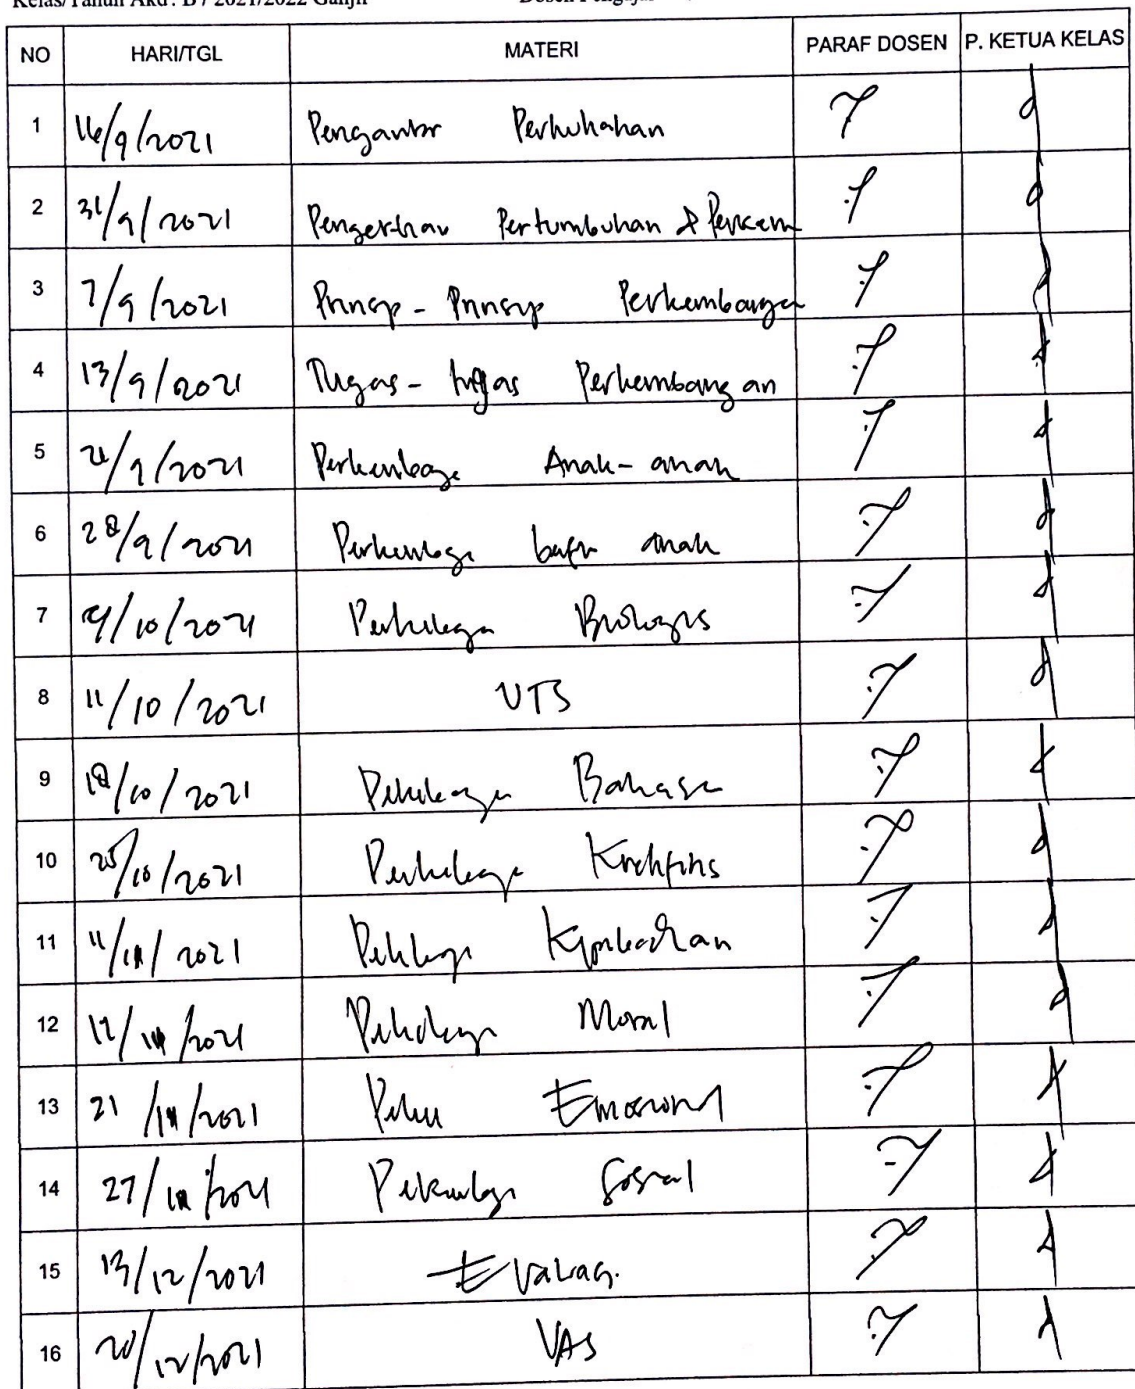 Kelas/Tahun Akd : B / 2021/2022 Ganjil
NO HARI/TGL MATERI PARAF DOSEN P. KETUA KELAS
1 16/9/2021 Pengantar Perkuliahan
2 31/9/2021 Pengertian Pertumbuhan & Perkem
3 7/9/2021 Prinsip - Prinsip Perkembangan
4 13/9/2021 Tugas - tugas Perkembangan
5 21/9/2021 Perkembangan Anak - anak
6 28/9/2021 Perkembangan anak
7 4/10/2021 Perkembangan Biologis
8 11/10/2021 UTS
9 18/10/2021 Perkembangan Bahasa
10 25/10/2021 Perkembangan
11 11/11/2021 Perkembangan Kepribadian
12 12/11/2021 Perkembangan Moral
13 21/11/2021 Emosional
14 27/11/2021 Perkembangan Sosial
15 13/12/2021 Evaluasi
16 20/12/2021 UAS